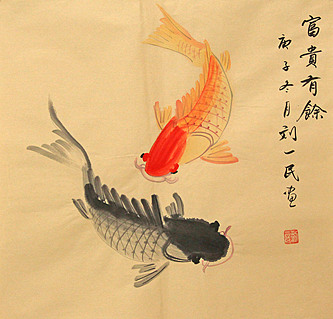 富貴有餘
庚子冬月刘一民画